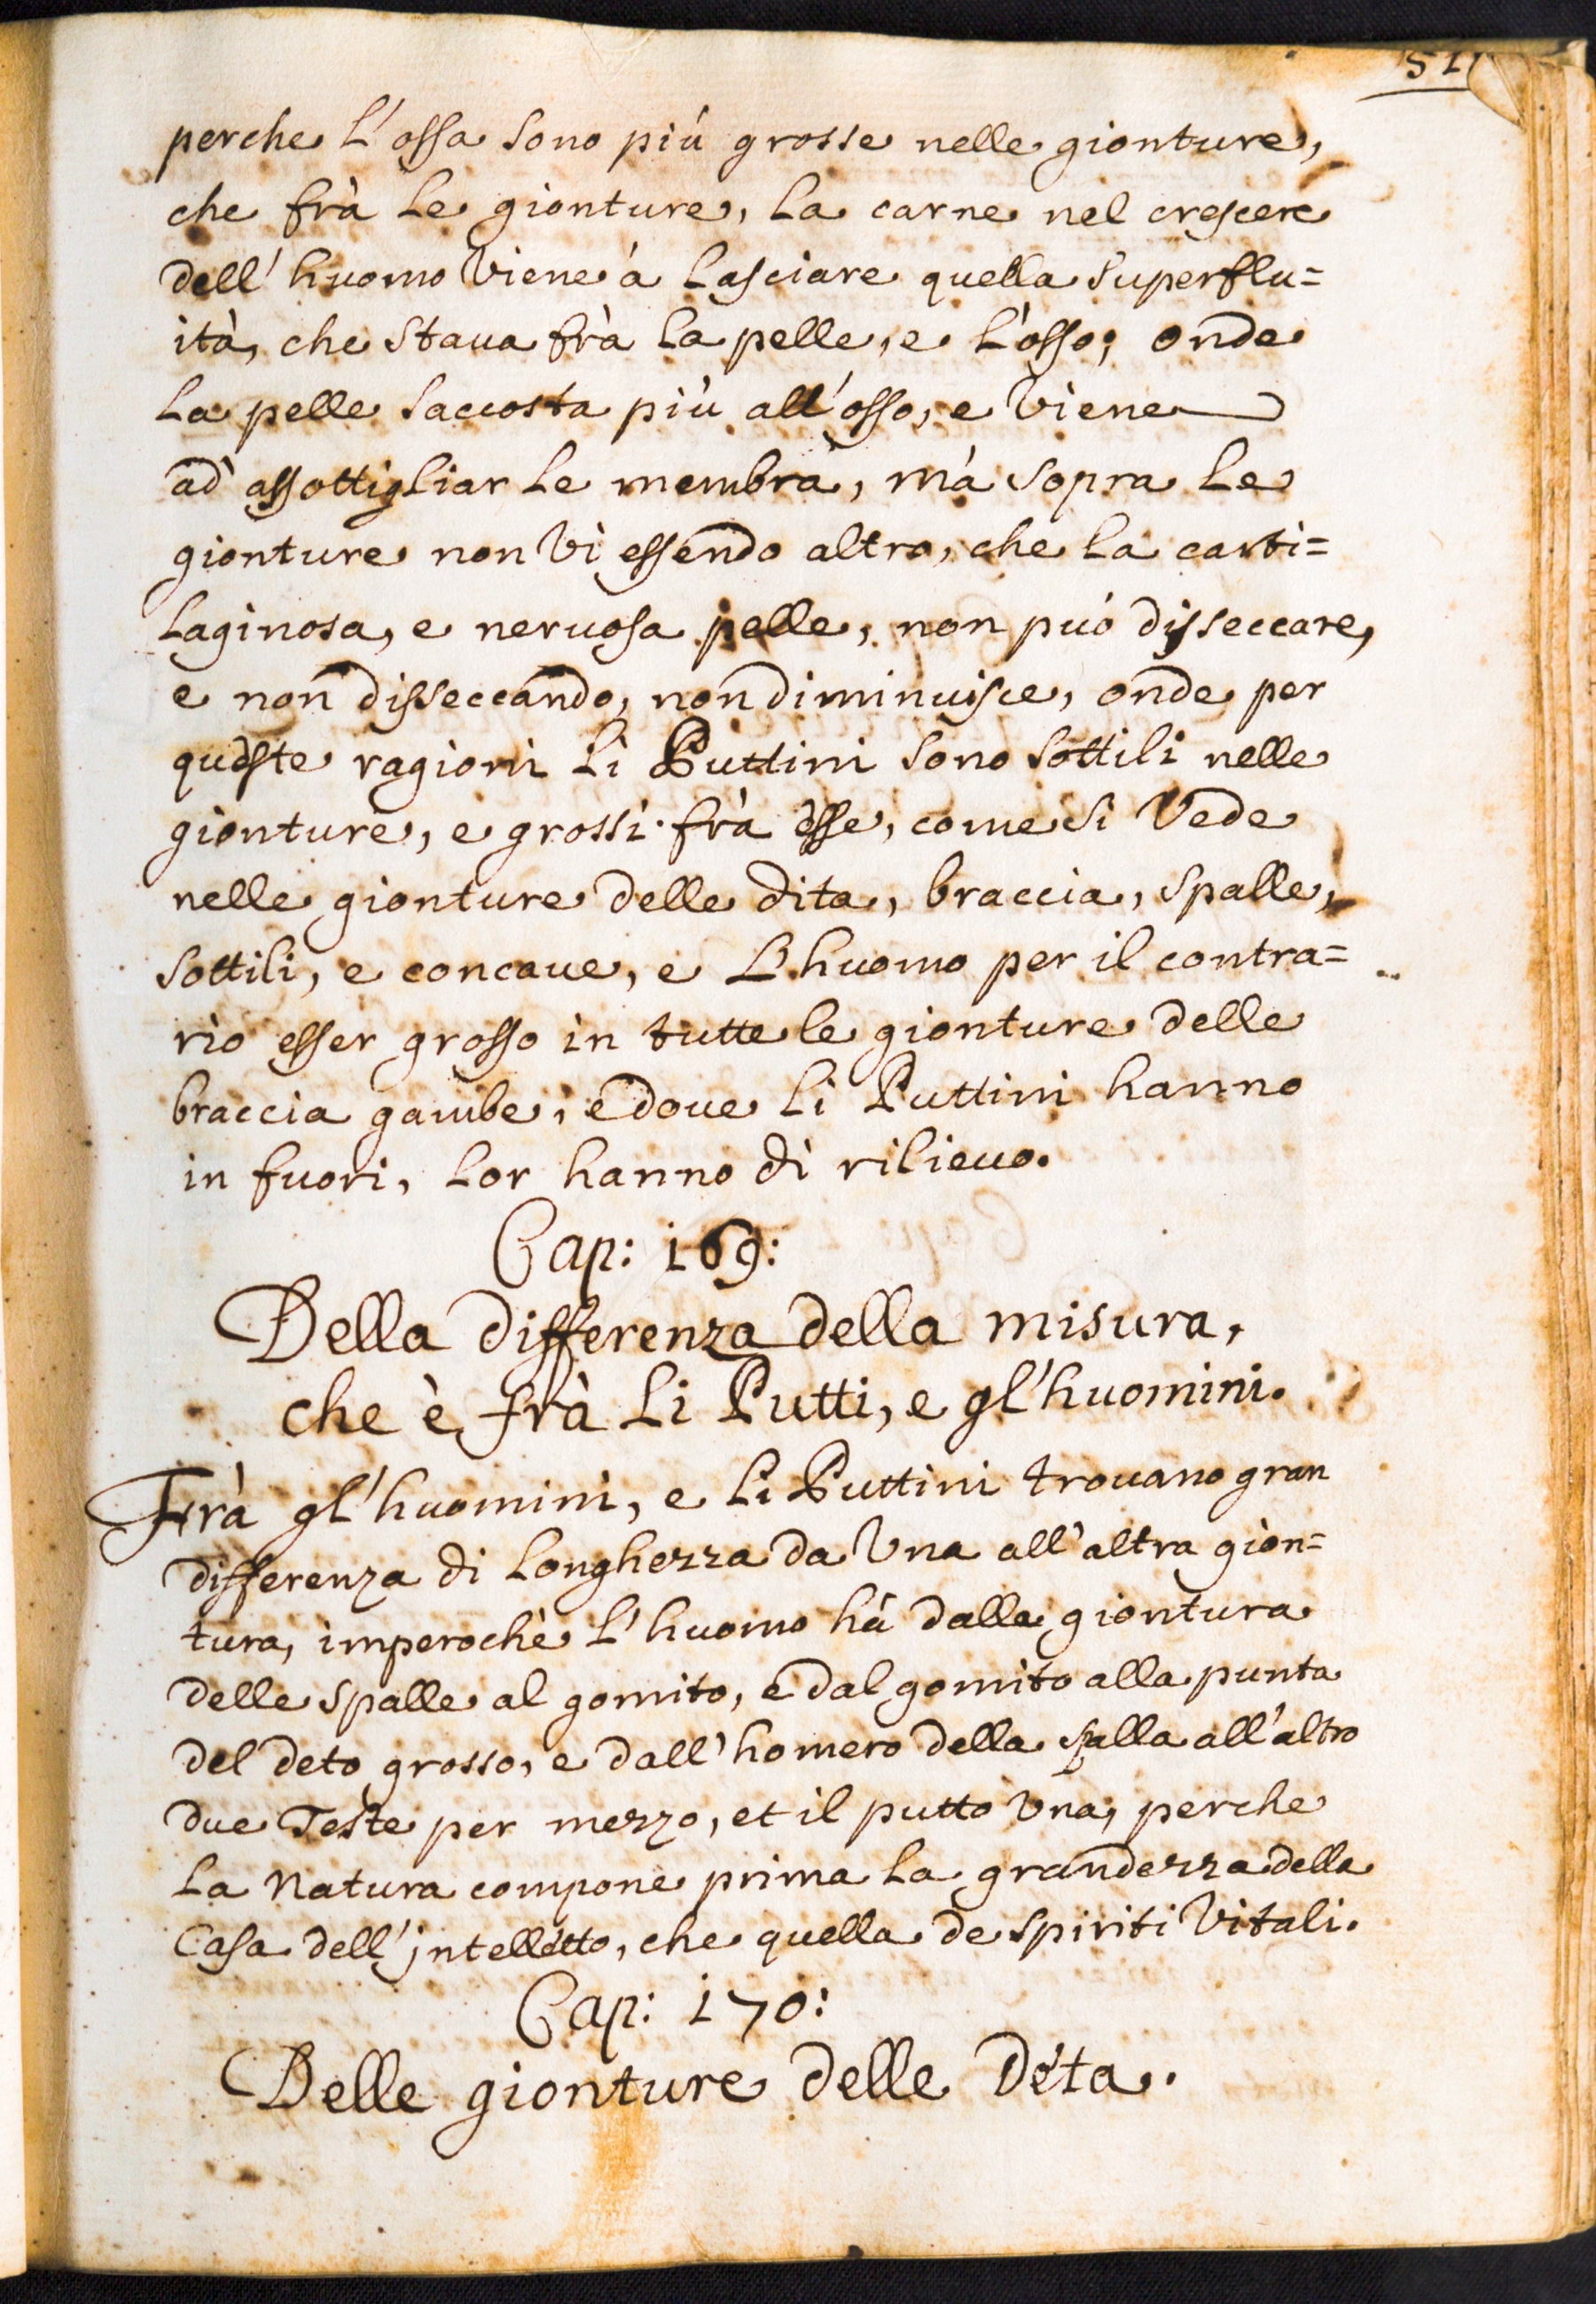 51
perche L'ossa sono più grosse nelle gionture,
che frà Le gionture, La carne nel crescere
dell' huomo Viene à Lasciare quella superflu=
ità, che staua frà La pelle, e L'osso; onde
La pelle s'accosta più all'osso, e Viene
ad assottigliar Le membra, mà sopra Le
gionture non Vi essendo altro, che La carti=
Laginosa, e neruosa pelle, non può disseccare,
e non disseccando, non diminuisce, onde per
queste ragioni Li Puttini sono sottili nelle
gionture, e grossi frà esse, come si Vede
nelle gionture delle dita, braccia, spalle,
sottili, e concaue, e L'huomo per il contra=
rio esser grosso in tutte le gionture delle
braccia gambe, e doue Li Puttini hanno
in fuori, Lor hanno di rilieuo.
Cap: 169:
Della differenza della misura,
che è frà Li Putti, e gl'huomini.
Frà gl'huomini, e Li Puttini trouano gran
differenza di Longhezza da Vna all'altra gion=
tura, imperochè L'huomo hà dalla giontura
delle spalle al gomito, e dal gomito alla punta
del deto grosso, e dall'homero della spalla all'altro
due Teste per mezzo, et il putto Vna, perche
La Natura compone prima La grandezza della
Casa dell'jntelletto, che quella de spiriti Vitali.
Cap: 170:
Delle gionture delle Deta.